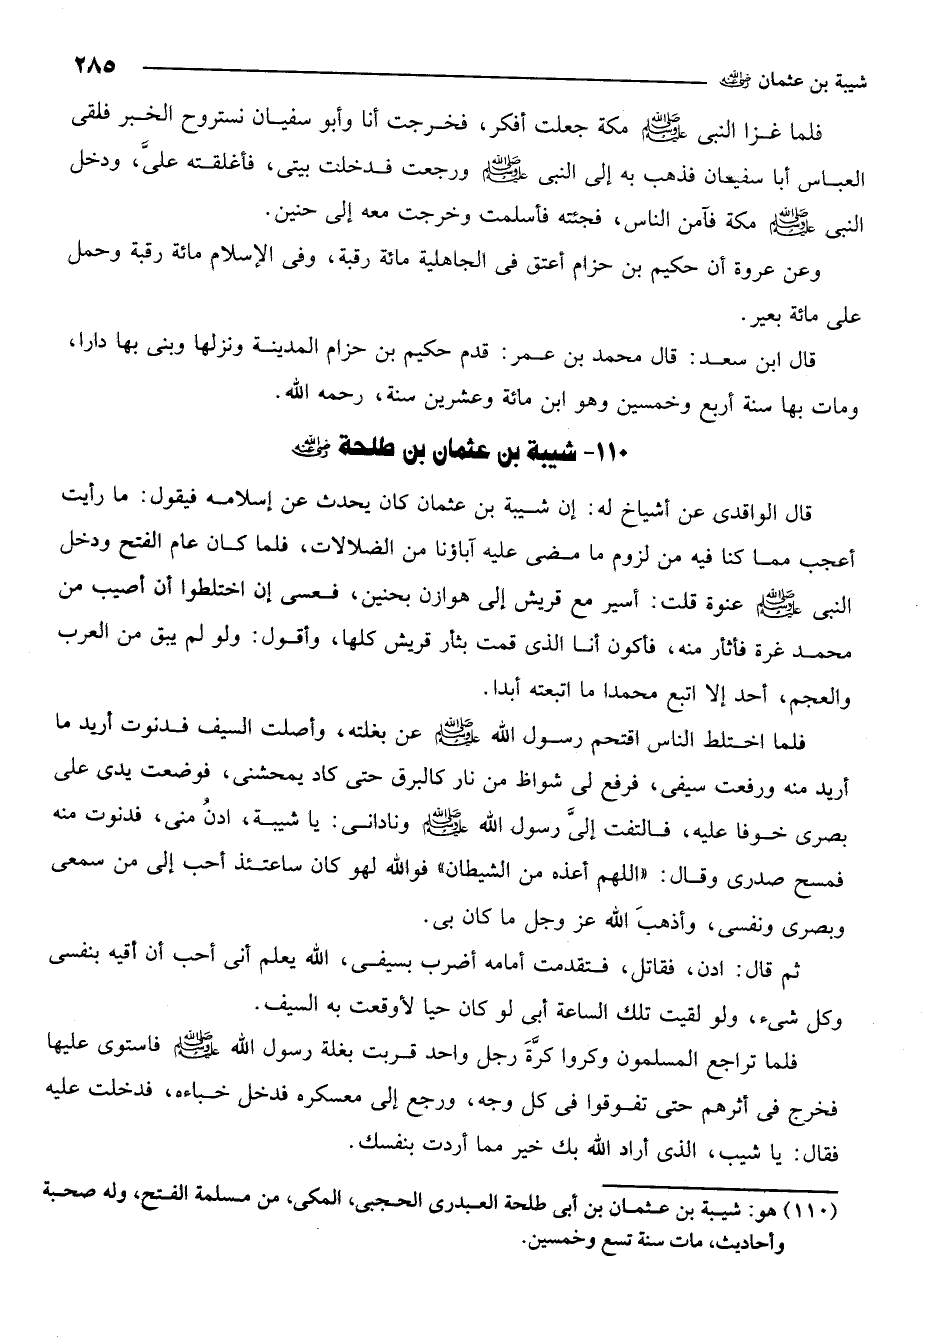 شيبة بن عثمان رضي الله عنه ٢٨٥
فلما غـزا النبى ﷺ مكة جعلت أفكر، فخـرجت أنا وأبو سفيـان نستروح الخـبر فلقى
العبـاس أبـا سفيـعان فذهب به إلى النبى ﷺ ورجعت فـدخلت بيتى، فأغلقـته علىَّ، ودخل
النبى ﷺ مكة فآمن الناس، فجئته فأسلمت وخرجت معه إلى حنين.
وعن عروة أن حكيم بن حزام أعتق فى الجاهلية مائة رقبة، وفى الإسلام مائة رقبة وحمل
على مائة بعير.
قال ابن سعـد: قال محمد بن عـمر: قدم حكيم بن حزام المدينـة ونزلها وبنى بها دارا،
ومات بها سنة أربع وخمسين وهو ابن مائة وعشرين سنة، رحمه الله.
١١٠- شيبة بن عثمان بن طلحة رضي الله عنه
قال الواقدى عن أشياخ له: إن شـيبة بن عثمان كان يحدث عن إسلامـه فيقول: ما رأيت
أعجب ممـا كنا فيه من لزوم ما مـضى عليه آباؤنا من الضلالات، فلما كـان عام الفتح ودخل
النبى ﷺ عنوة قلت: أسير مع قريش إلى هوازن بحنين، فـعسى إن اختلطوا أن أصيب من
محمـد غرة فأثأر منه، فأكون أنـا الذى قمت بثأر قريش كلها، وأقـول: ولو لم يبق من العرب
والعجم، أحد إلا اتبع محمدا ما اتبعته أبدا.
فلما اخـتلط الناس اقتحم رسـول الله ﷺ عن بغلته، وأصلت السيف فـدنوت أريد ما
أريد منه ورفعت سيفى، فرفع لى شواظ من نار كالبرق حتى كاد يمحشنى، فوضعت يدى على
بصرى خـوفا عليه، فـالتفت إلىَّ رسول الله ﷺ ونادانـى: يا شيبـة، ادنُ منى، فدنوت منه
فمسح صدرى وقـال: «اللهم أعذه من الشيطان» فوالله لهو كان ساعتـئذ أحب إلى من سمعى
وبصرى ونفسى، وأذهبَ الله عز وجل ما كان بى.
ثم قال: ادن، فقاتل، فـتقدمت أمامه أضرب بسيفـى، الله يعلم أنى أحب أن أقيه بنفسى
وكل شىء، ولو لقيت تلك الساعة أبى لو كان حيا لأوقعت به السيف.
فلما تراجع المسلمون وكروا كرَّةَ رجل واحد قـربت بغلة رسول الله ﷺ فاستوى عليها
فخرج فى أثرهم حتى تفـوقوا فى كل وجه، ورجع إلى معسكره فدخل خـباءه، فدخلت عليه
فقال: يا شيب، الذى أراد الله بك خير مما أردت بنفسك.
(١١٠) هو: شيـبة بن عـثمـان بن أبى طلحة العبـدرى الحـجبى، المكى، من مسلمة الفتح، وله صحبة
وأحاديث، مات سنة تسع وخمسين.